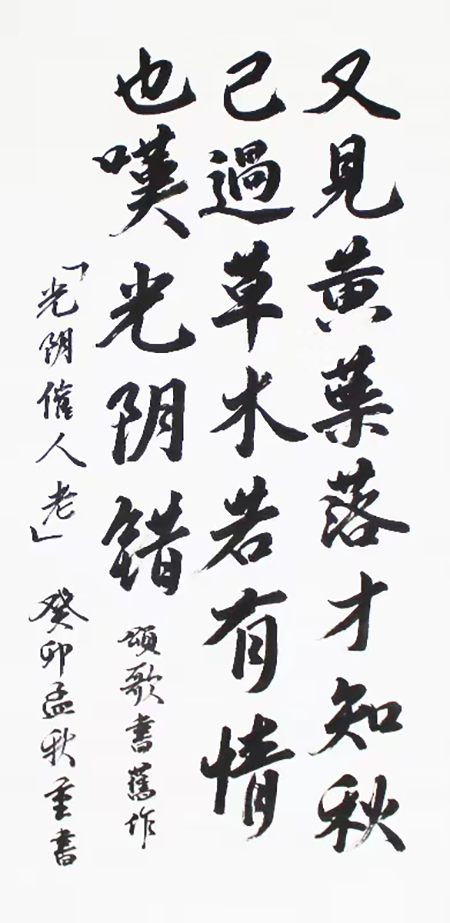 又見黄葉落才知秋
已過草木若有情
也嘆光阴錯
頌歌書舊作
「光阴催人老」
癸卯孟秋重書